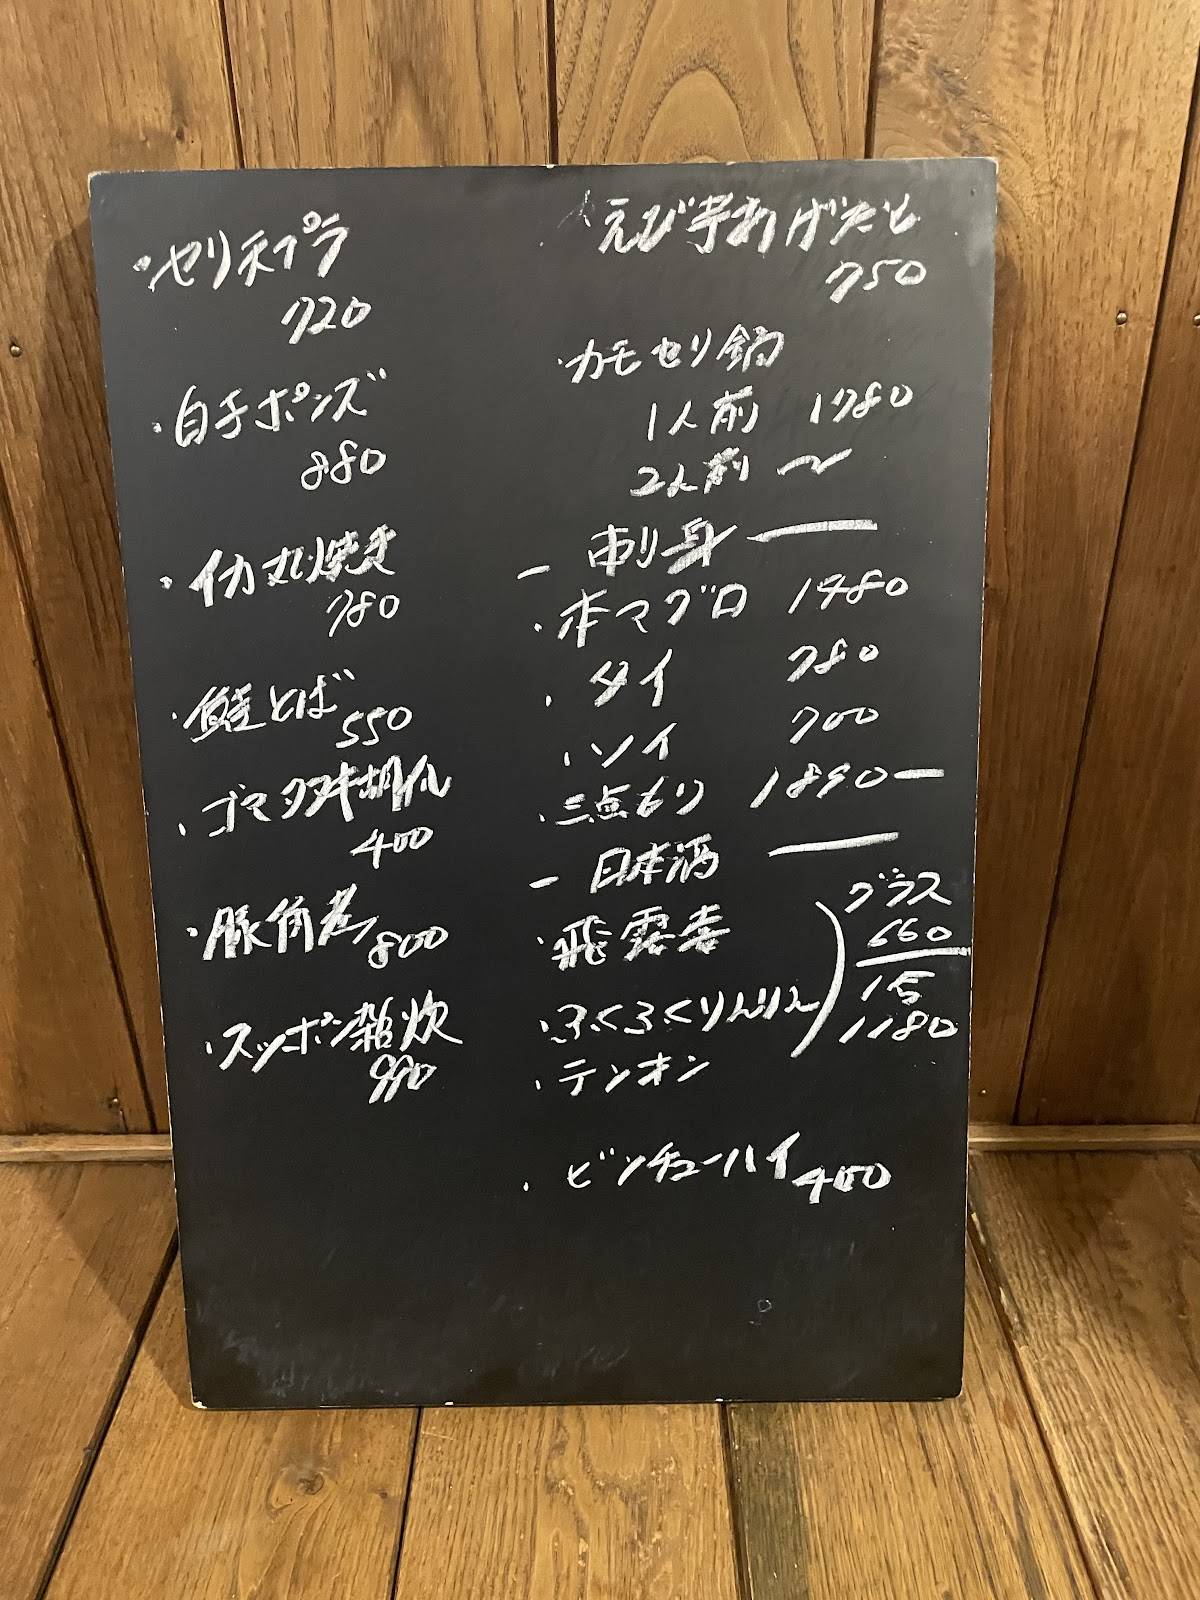 ・セリ天プラ
720
・白子ポンズ
880
・イカ丸焼き
780
・鮭とば
550
・ゴマ 胡瓜
400
・豚角煮
800
・スッポン雑炊
990
・えび芋あげだし
750
・カモセリ鍋
1人前 1780
2人前 〜
ー 刺身 ー
・本マグロ 1480
・タイ 780
・ソイ 700
・三点もり 1890ー
ー 日本酒 ー
・飛露喜
・ふくろくりんりん
・テンオン
グラス
660
1合
1180
・ビンチューハイ 400